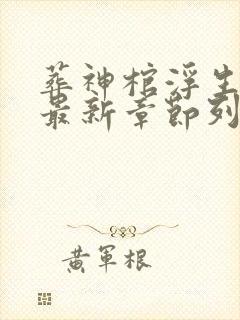 葬神棺浮生
最新章節列
黃軍根